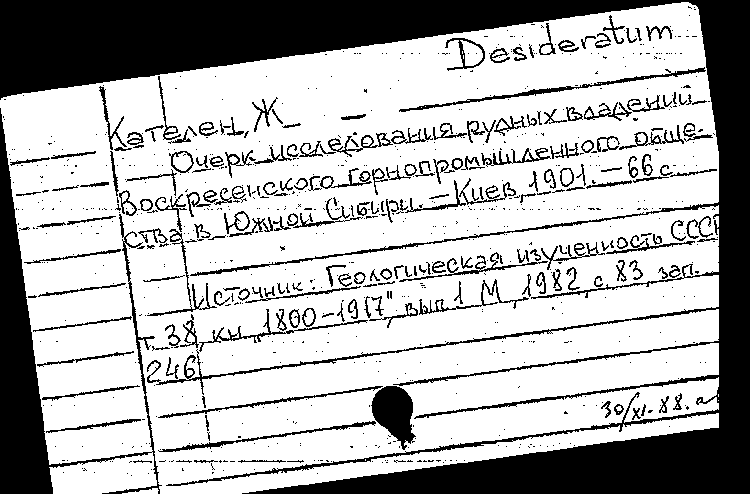 Desideratum
Кателен, Ж
Очерк исследования рудных владений
Воскресенского горнопромышленного обще-
ства в Южной Сибири. — Киев, 1901. — 66 с.
Источник: Геологическая изученность СССР
т. 38, кн „1800-1917", вып 1 М, 1982, с. 83, зап.
246
30/XI-88.